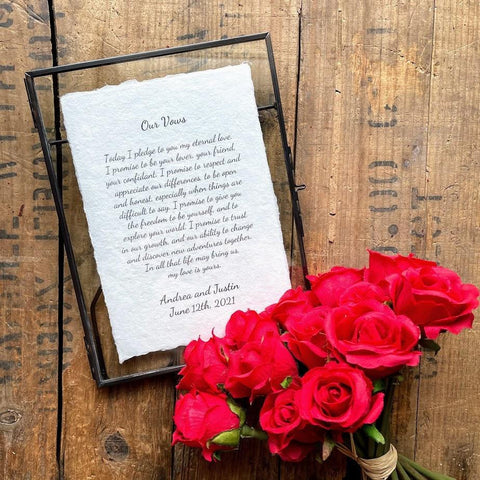 Our Vows
Today I pledge to you my eternal love.
I promise to be your lover, your friend,
your confidant. I promise to respect and
appreciate our differences, to be open
and honest, especially when things are
difficult to say. I promise to give you
the freedom to be yourself, and to
explore your world. I promise to trust
in our growth, and our ability to change
and discover new adventures together.
In all that life may bring us,
my love is yours.
Andrea and Justin
June 12th, 2021